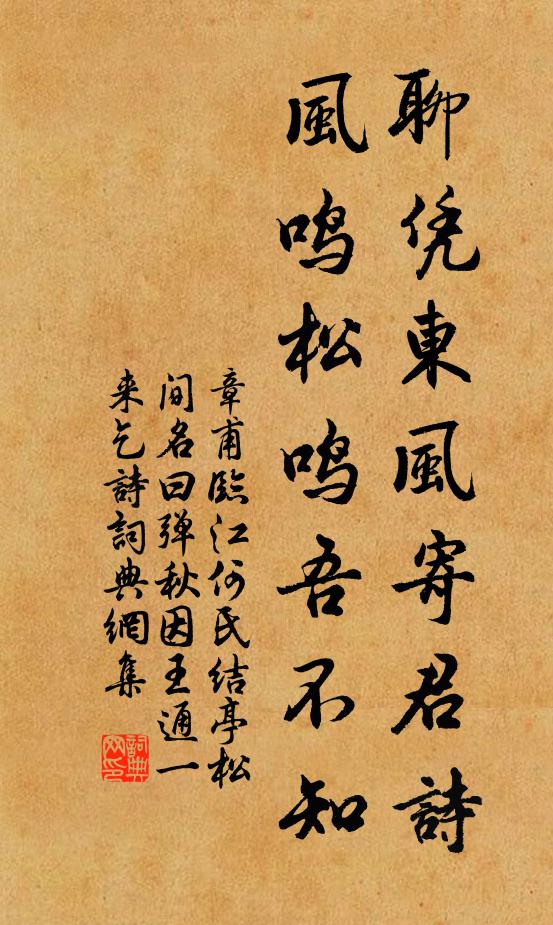 聊凭東風寄君詩
風鸣松鸣吾不知
章甫臨江何氏结亭松
间名曰弹秋因王通一
来乞詩詞典網集
詞典网印